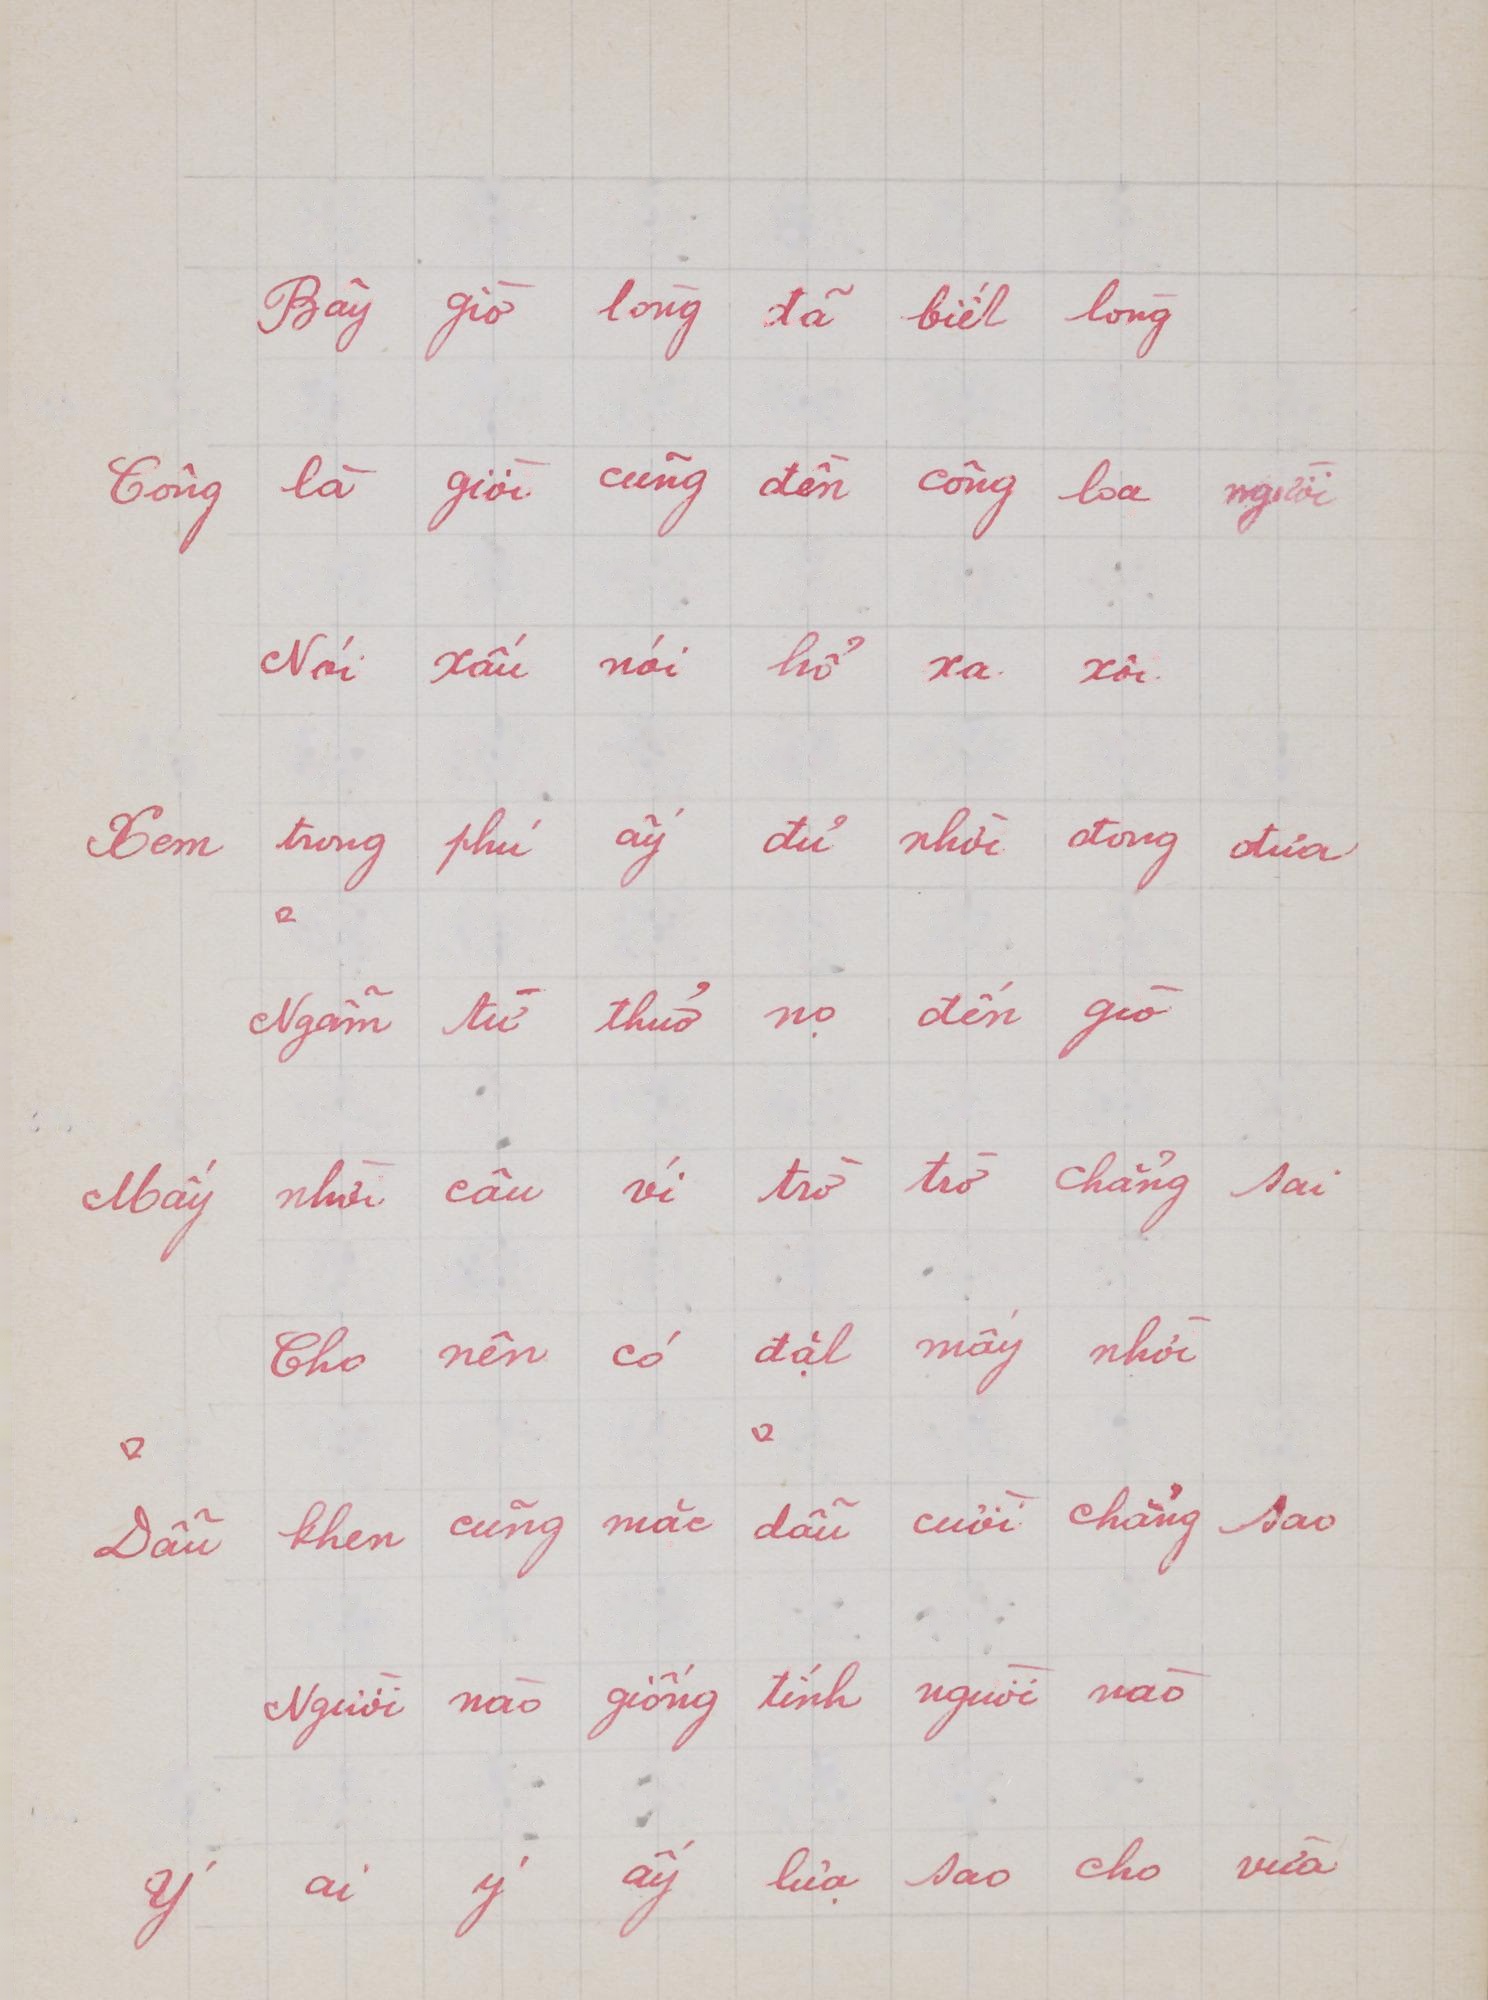 Bây giờ lòng đã biết lòng
Công là giời cũng đền công loa người
Nói xấu nói hổ xa xôi
Xem trong phú ấy đủ nhời đong đưa
Ngẫm từ thuở nọ đến giờ
Mấy nhời câu ví trờ trờ chẳng sai
Cho nên có đặt mấy nhời
Dẫu khen cũng mặc dẫu cười chẳng sao
Người nào giống tính người nào
Ý ai ý ấy lựa sao cho vừa